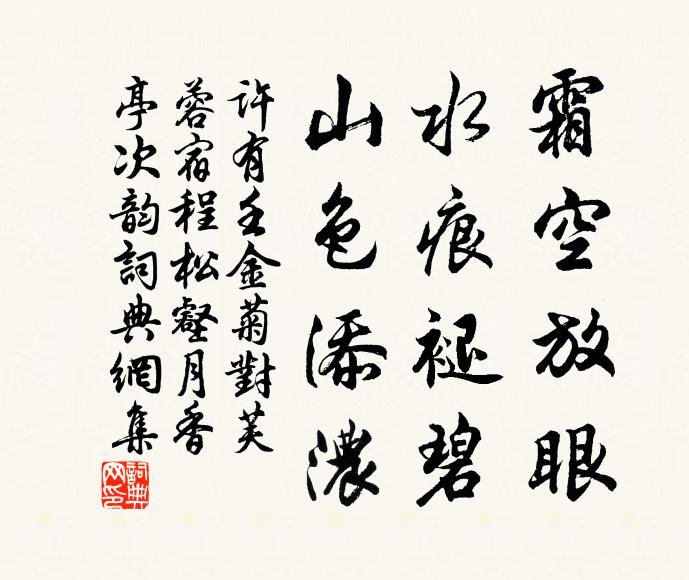 霜空放眼
水痕褪碧
山色添濃
許有壬金菊對芙
蓉宿程松壑月香
亭次韵詞典網集
詞典網印